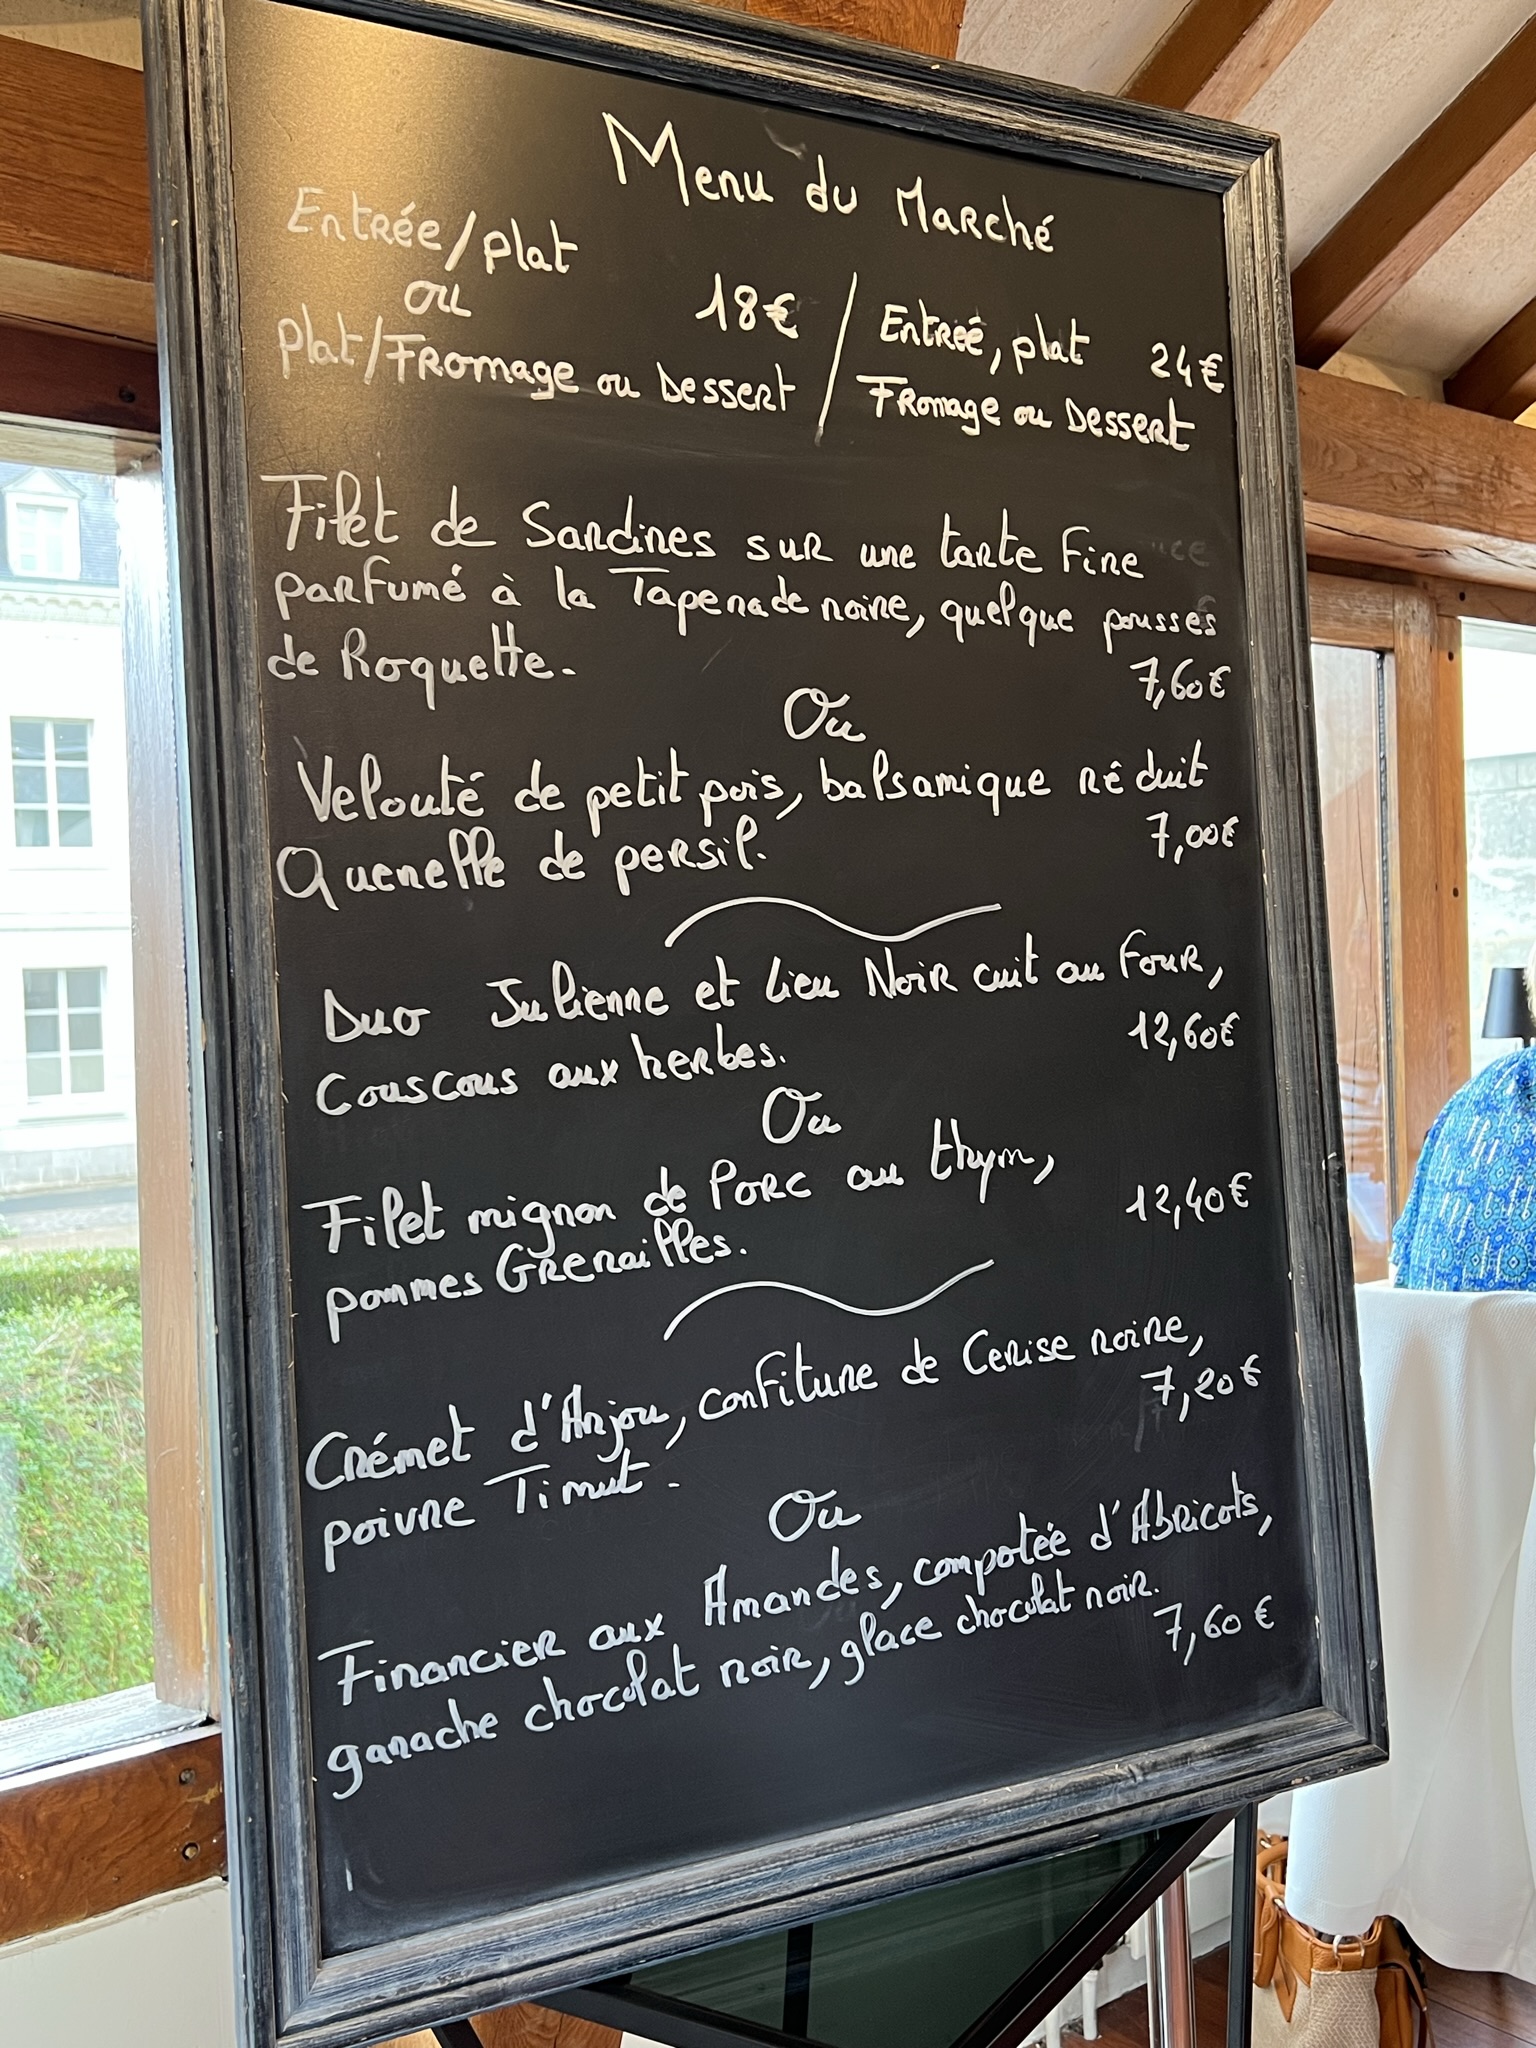 Menu du Marché
Entrée/plat
ou
18€
plat/Fromage ou Dessert
/
Entreé, plat 24€
Fromage ou Dessert
Filet de Sardines sur une tarte fine
parfumé à la Tapenade noire, quelque pousses
de Roquette.
7,60€
Ou
Velouté de petit pois, balsamique réduit
Quenelle de persil.
7,00€
Duo Julienne et Lieu Noir cuit au four,
Couscous aux herbes.
12,60€
Ou
Filet mignon de Porc au thym,
pommes Grenailles.
12,40€
Crémet d'Anjou, confiture de Cerise noire,
poivre Timut.
7,20€
Ou
Financier aux Amandes, compotée d'Abricots,
ganache chocolat noir, glace chocolat noir.
7,60€